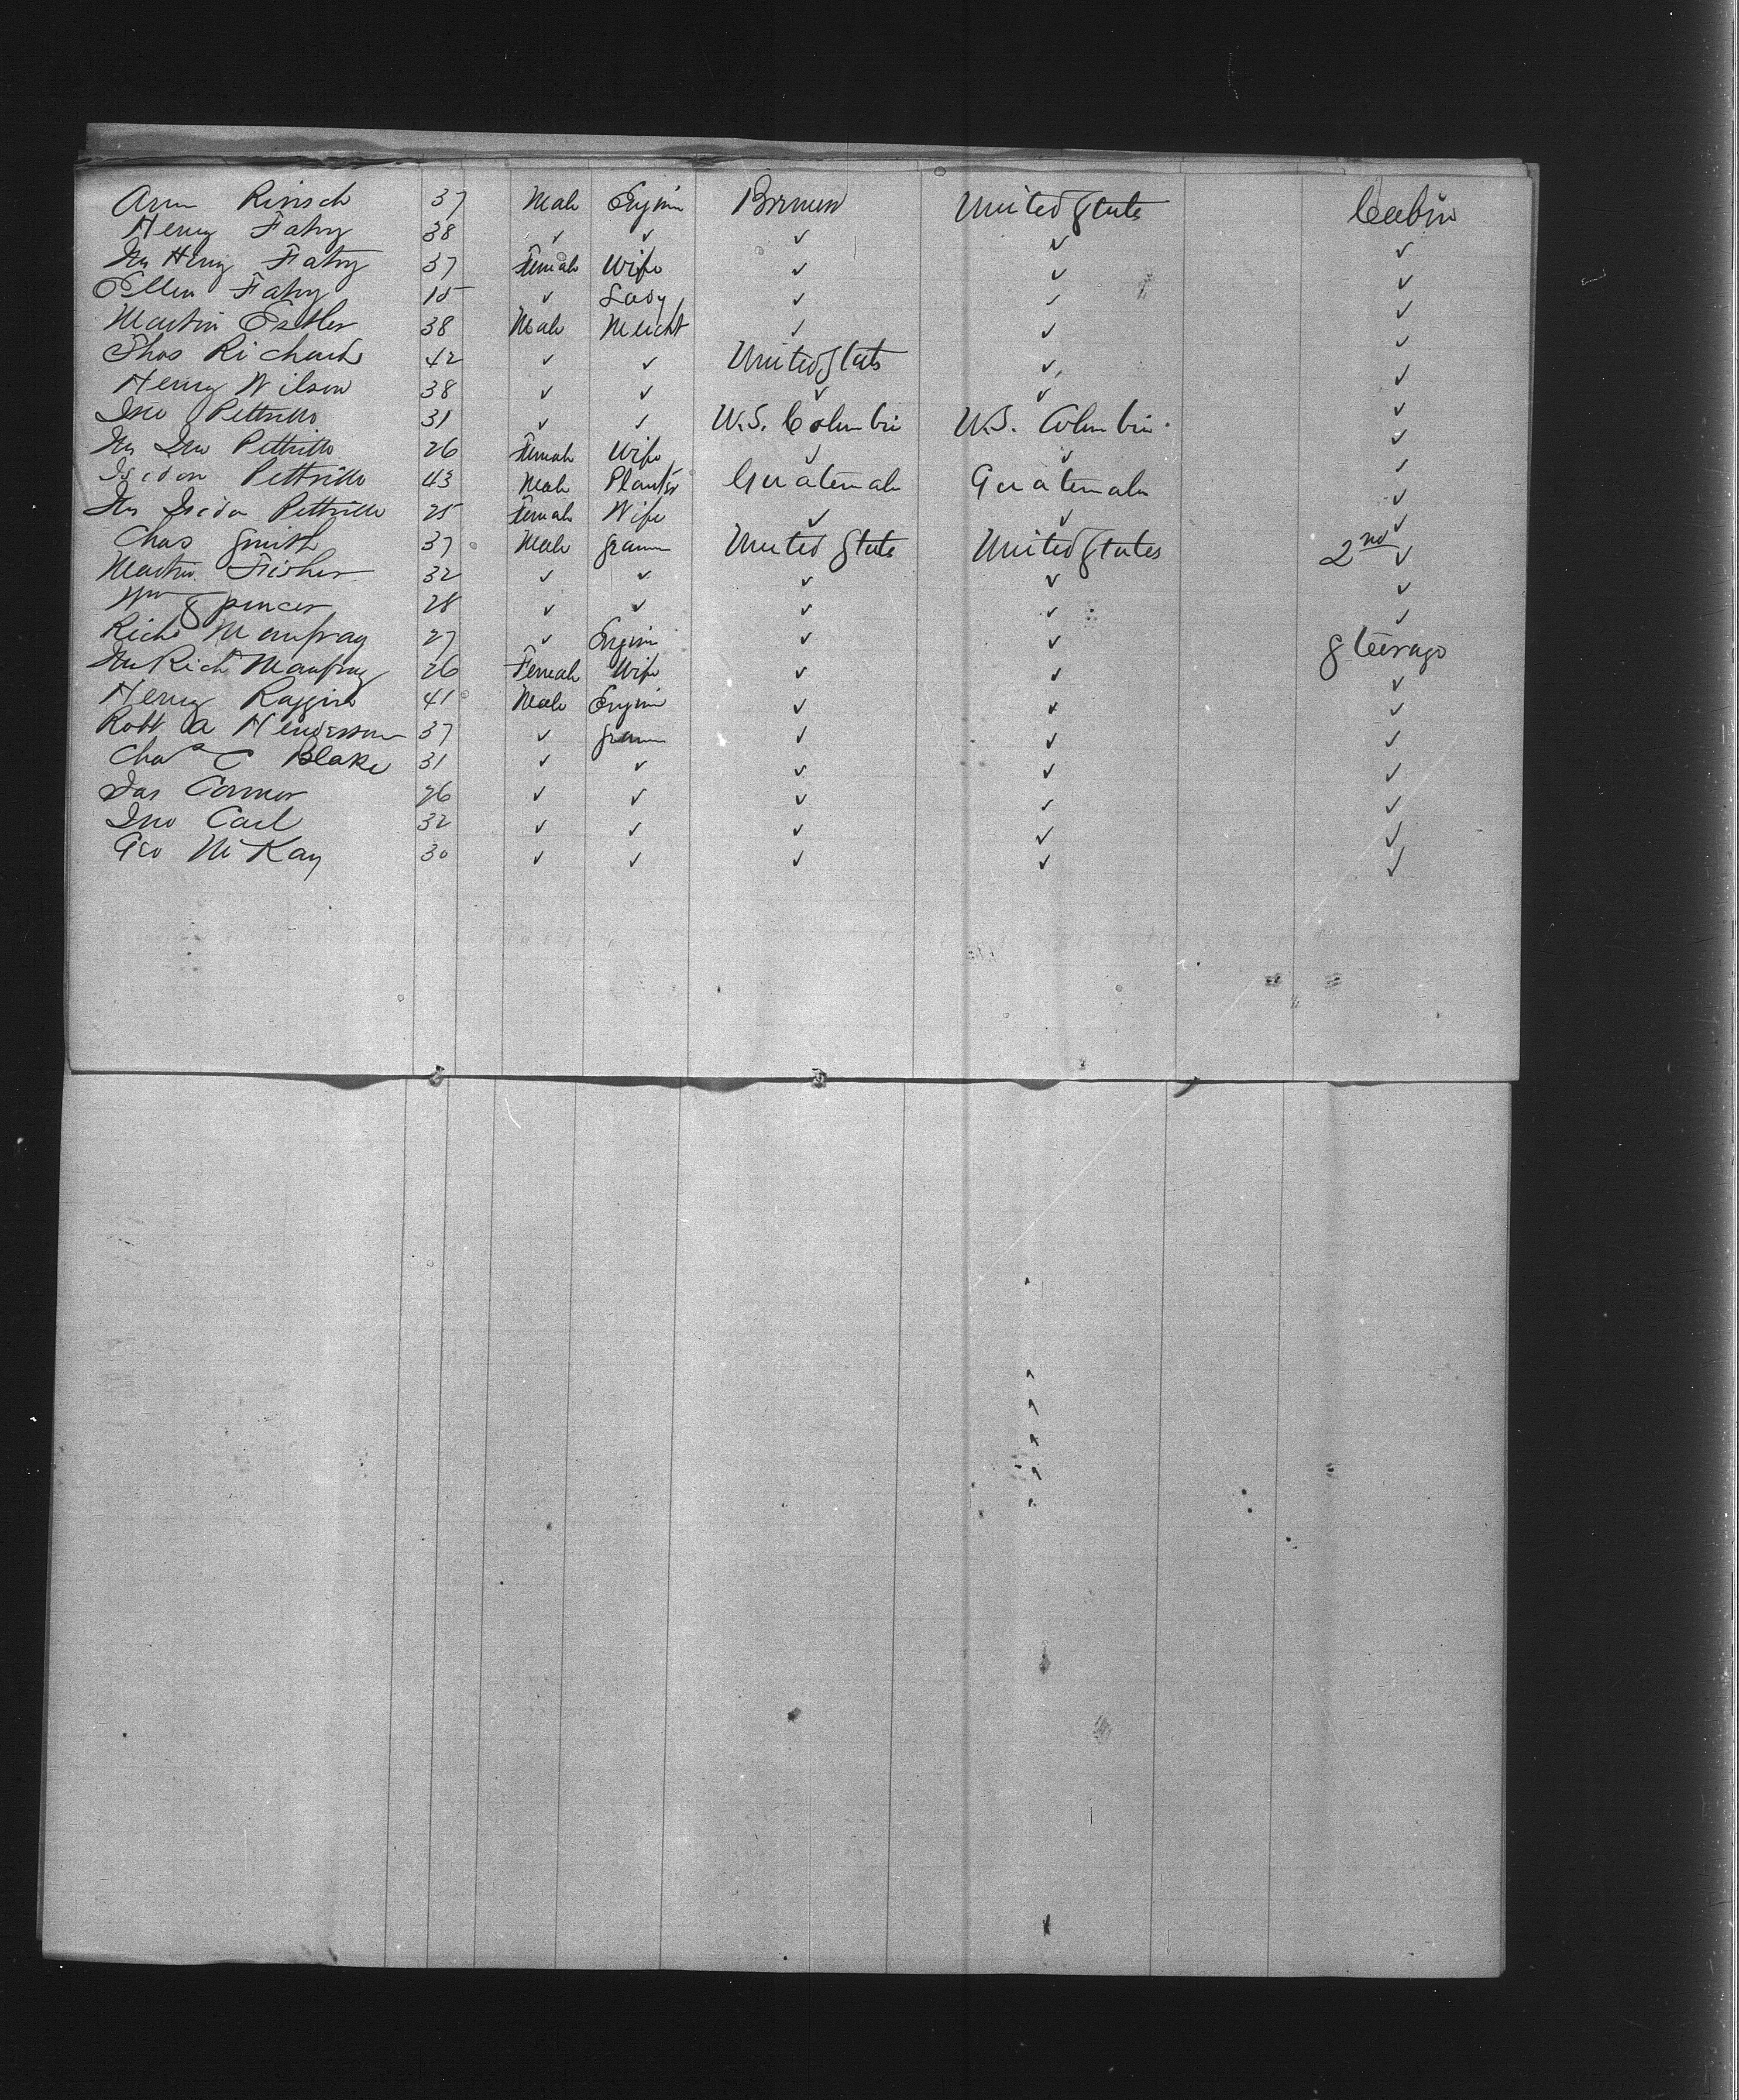 Arm Rinsch 37 Male Engin Bremen United States Cabin
Henry Fahry 38 ✓ ✓ ✓ ✓ ✓
Mrs Henry Fahry 37 Female Wife ✓ ✓ ✓
Ellen Fahry 15 ✓ Lady ✓ ✓ ✓
Martin Esther 38 Male Mercht ✓ ✓ ✓
Thos Richards 42 ✓ ✓ United Stats ✓ ✓
Henry Wilson 38 ✓ ✓ ✓ ✓ ✓
Jno Pettrillo 31 ✓ ✓ U.S. Columbia U.S. Columbia ✓
Mrs Jno Pettrillo 26 Female Wife ✓ ✓ ✓
Isidor Pettrillo 43 Male Planter Guatemala Guatemala ✓
Mrs Isidor Pettrillo 25 Female Wife ✓ ✓ ✓
Chas Smith 37 Male Seaman United State United States 2nd ✓
Martin Fisher 32 ✓ ✓ ✓ ✓ ✓
Wm Spencer 28 ✓ ✓ ✓ ✓ ✓
Richd Maufray 27 ✓ Engin ✓ ✓ Steerage
Mrs Richd Maufray 26 Female Wife ✓ ✓ ✓
Henry 41 Male Engin ✓ ✓ ✓
Robt A Henderson 37 ✓ Seaman ✓ ✓ ✓
Chas C Blake 31 ✓ ✓ ✓ ✓ ✓
Jas Connor 26 ✓ ✓ ✓ ✓ ✓
Jno Carl 32 ✓ ✓ ✓ ✓ ✓
Geo McKay 30 ✓ ✓ ✓ ✓ ✓